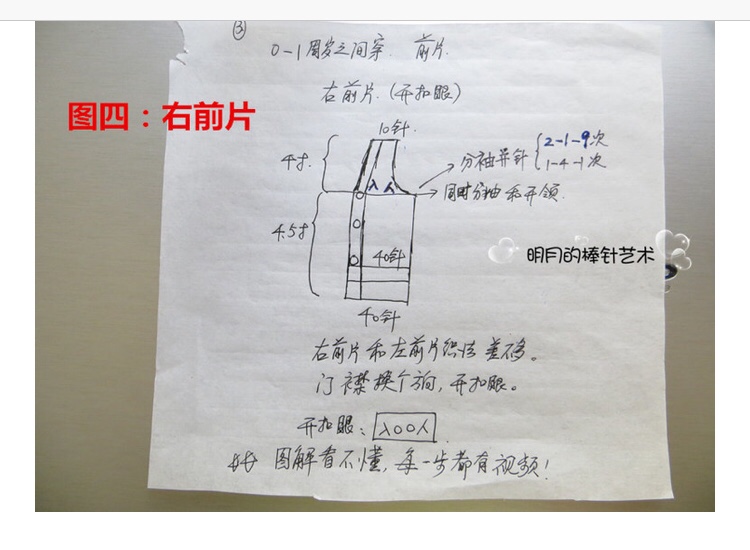 ③
0-1周岁之间穿. 前片.
右前片.(开扣眼)
图四：右前片
10针.
4寸.
分袖异针 2-1-9次
1-4-1次
入人
同时分袖和开领.
4.5寸
40针
明月的棒针艺术
40针
右前片和左前片织法差不多。
门襟换个方向，开扣眼。
开扣眼：入〇〇人
图解看不懂，每一步都有视频！